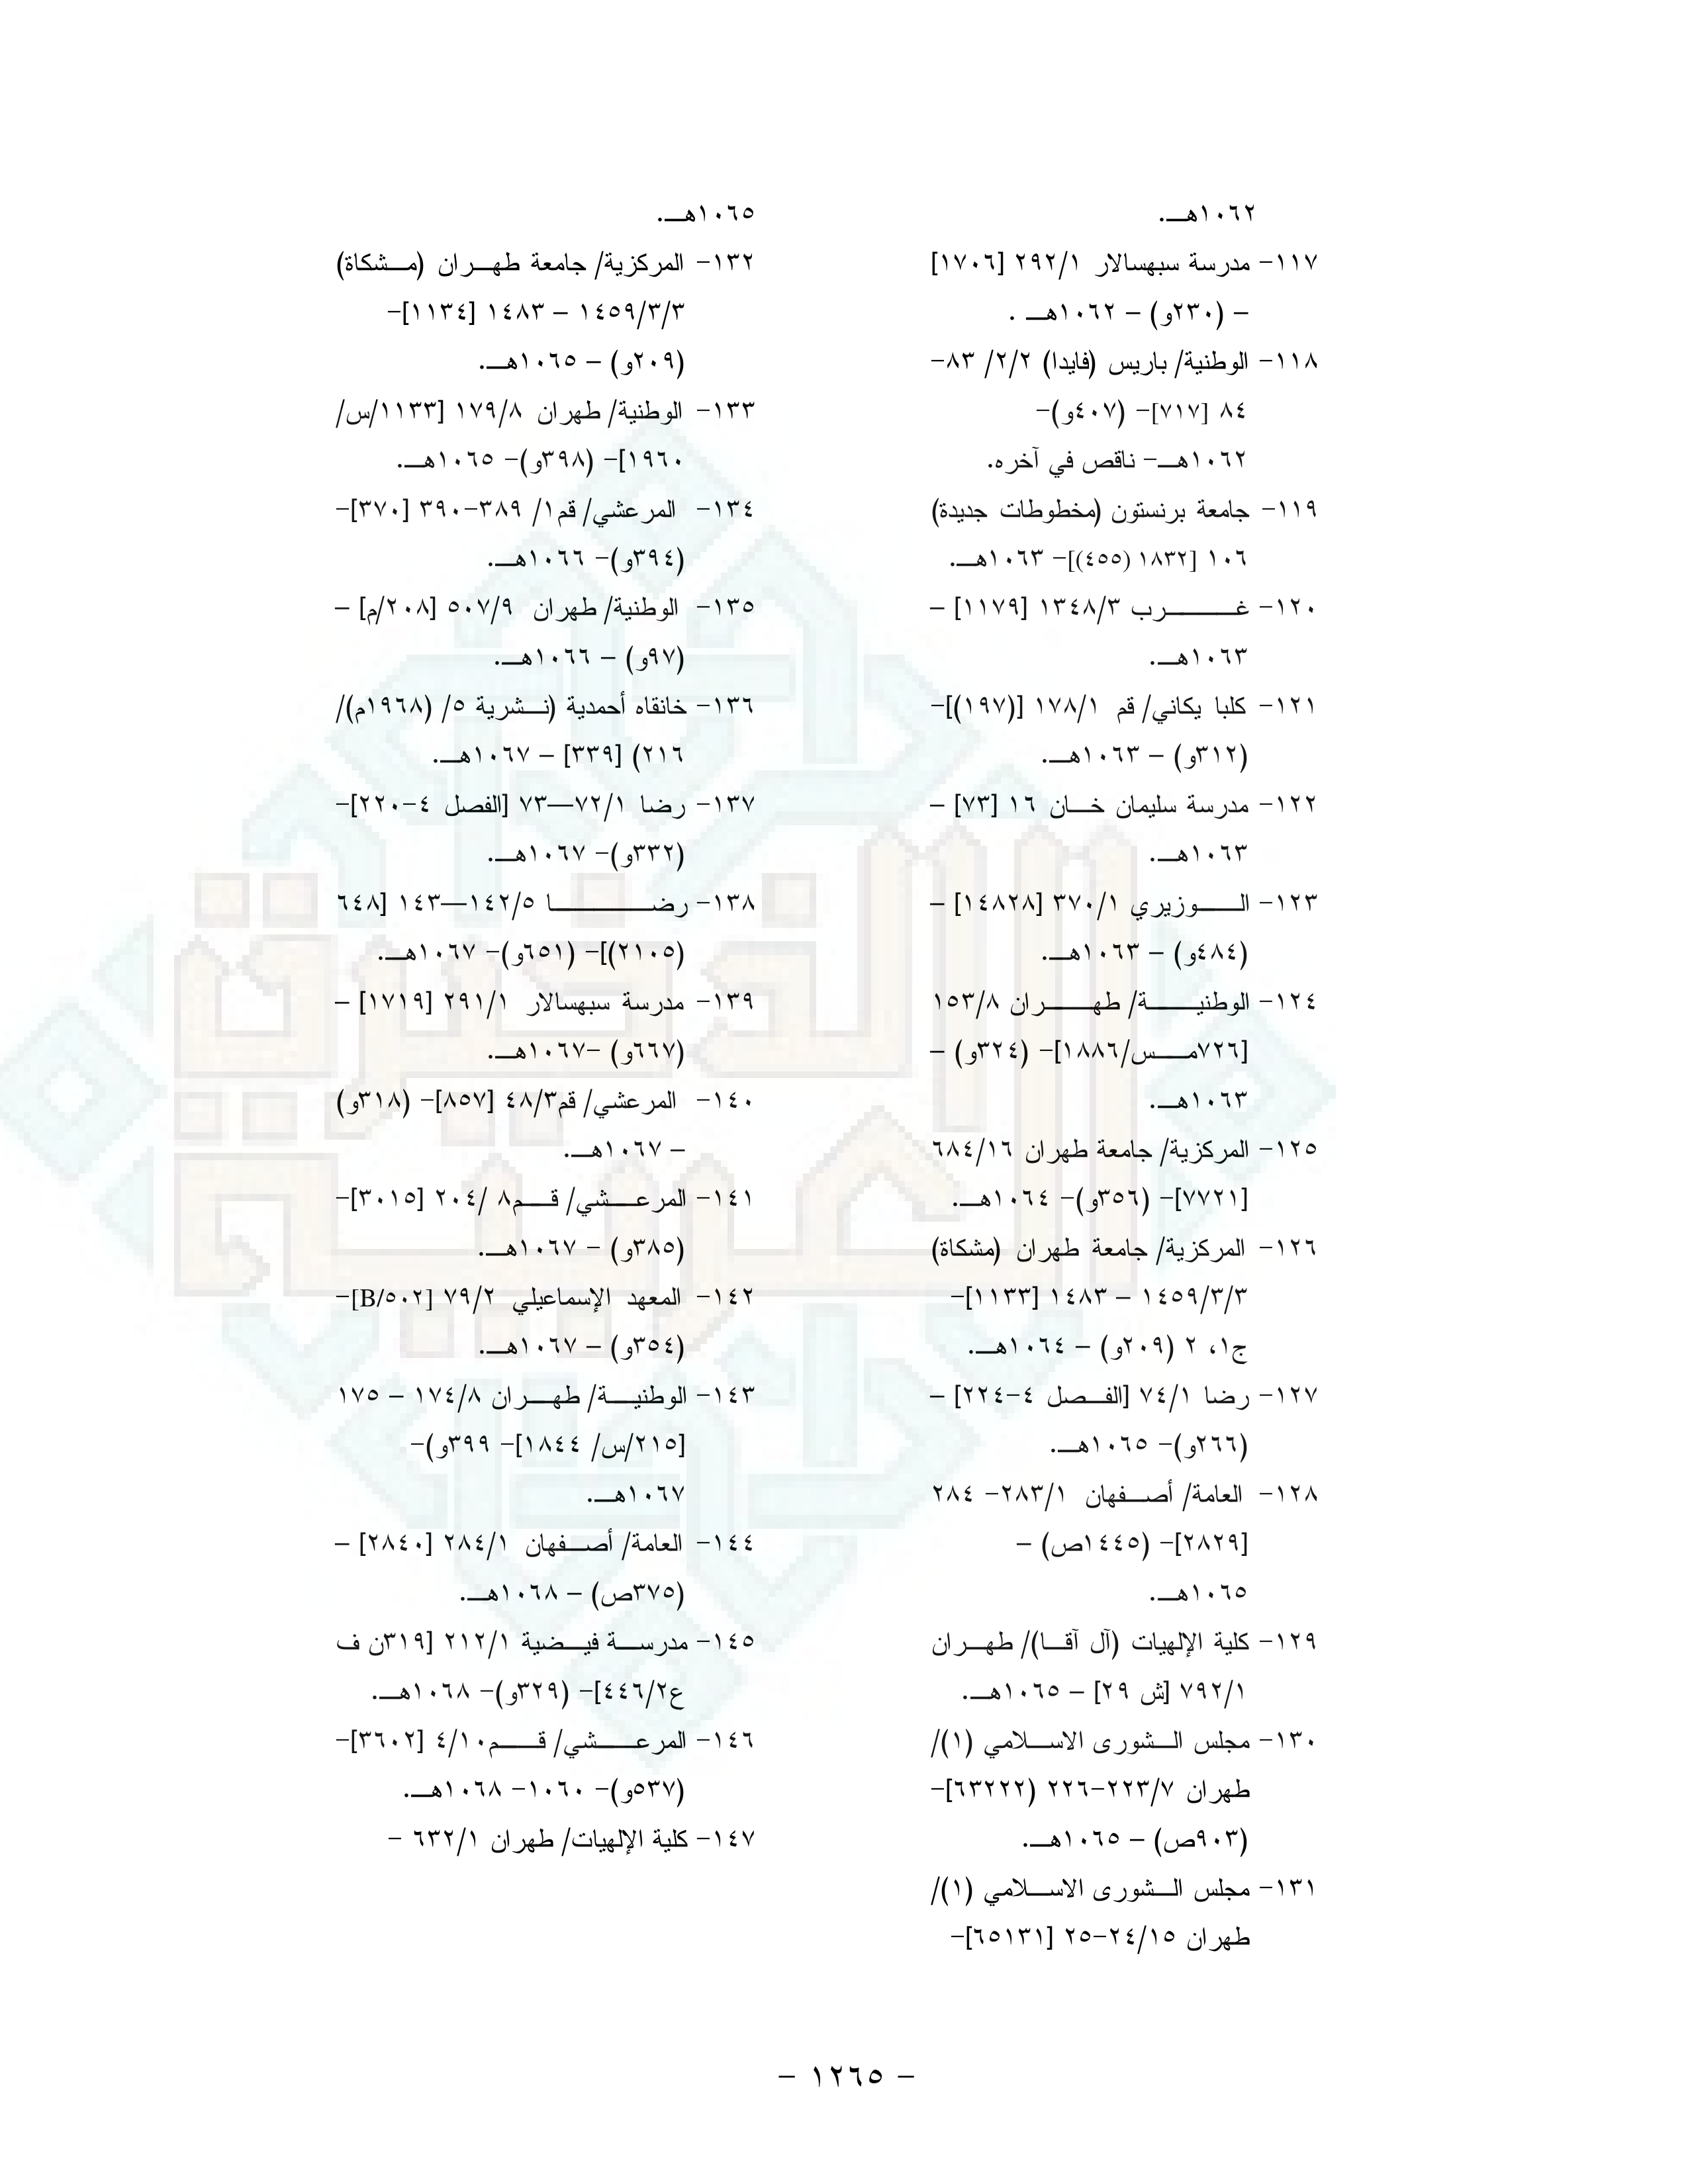 ١٠٦٢هـ.
١١٧- مدرسة سبهسالار ٢٩٢/١ [١٧٠٦]
– (٢٣٠و) – ١٠٦٢هـ .
١١٨- الوطنية/ باريس (فايدا) ٢/٢/ ٨٣-
٨٤ [٧١٧]- (٤٠٧و)-
١٠٦٢هـ- ناقص في آخره.
١١٩- جامعة برنستون (مخطوطات جديدة)
١٠٦ [١٨٣٢ (٤٥٥)]- ١٠٦٣هـ.
١٢٠- غرب ١٣٤٨/٣ [١١٧٩] –
١٠٦٣هـ.
١٢١- كلبا يكاني/ قم ١٧٨/١ [(١٩٧)]-
(٣١٢و) – ١٠٦٣هـ.
١٢٢- مدرسة سليمان خان ١٦ [٧٣] –
١٠٦٣هـ.
١٢٣- الوزيري ٣٧٠/١ [١٤٨٢٨] –
(٤٨٤و) – ١٠٦٣هـ.
١٢٤- الوطنية/ طهران ١٥٣/٨
[٧٢٦مس/١٨٨٦]- (٣٢٤و) –
١٠٦٣هـ.
١٢٥- المركزية/ جامعة طهران ٦٨٤/١٦
[٧٧٢١]- (٣٥٦و)- ١٠٦٤هـ.
١٢٦- المركزية/ جامعة طهران (مشكاة)
١٤٥٩/٣/٣ – ١٤٨٣ [١١٣٣]-
ج١، ٢ (٢٠٩و) – ١٠٦٤هـ.
١٢٧- رضا ٧٤/١ [الفصل ٤-٢٢٤] –
(٢٦٦و)- ١٠٦٥هـ.
١٢٨- العامة/ أصفهان ٢٨٣/١- ٢٨٤
[٢٨٢٩]- (١٤٤٥ص) –
١٠٦٥هـ.
١٢٩- كلية الإلهيات (آل آقا)/ طهران
٧٩٢/١ [ش ٢٩] – ١٠٦٥هـ.
١٣٠- مجلس الشورى الاسلامي (١)/
طهران ٢٢٣/٧-٢٢٦ (٦٣٢٢٢]-
(٩٠٣ص) – ١٠٦٥هـ.
١٣١- مجلس الشورى الاسلامي (١)/
طهران ٢٤/١٥-٢٥ [٦٥١٣١]-
١٠٦٥هـ.
١٣٢- المركزية/ جامعة طهران (مشكاة)
١٤٥٩/٣/٣ – ١٤٨٣ [١١٣٤]-
(٢٠٩و) – ١٠٦٥هـ.
١٣٣- الوطنية/ طهران ١٧٩/٨ [١١٣٣/س/
١٩٦٠]- (٣٩٨و)- ١٠٦٥هـ.
١٣٤- المرعشي/ قم١/ ٣٨٩-٣٩٠ [٣٧٠]-
(٣٩٤و)- ١٠٦٦هـ.
١٣٥- الوطنية/ طهران ٥٠٧/٩ [٢٠٨/م] –
(٩٧و) – ١٠٦٦هـ.
١٣٦- خانقاه أحمدية (نشرية ٥/ (١٩٦٨م)/
٢١٦) [٣٣٩] – ١٠٦٧هـ.
١٣٧- رضا ٧٢/١—٧٣ [الفصل ٤-٢٢٠]-
(٣٣٢و)- ١٠٦٧هـ.
١٣٨- رضا ١٤٢/٥—١٤٣ [٦٤٨
(٢١٠٥)]- (٦٥١و)- ١٠٦٧هـ.
١٣٩- مدرسة سبهسالار ٢٩١/١ [١٧١٩] –
(٦٦٧و) -١٠٦٧هـ.
١٤٠- المرعشي/ قم٤٨/٣ [٨٥٧]- (٣١٨و)
– ١٠٦٧هـ.
١٤١- المرعشي/ قم٨ /٢٠٤ [٣٠١٥]-
(٣٨٥و) – ١٠٦٧هـ.
١٤٢- المعهد الإسماعيلي ٧٩/٢ [B/٥٠٢]-
(٣٥٤و) – ١٠٦٧هـ.
١٤٣- الوطنية/ طهران ١٧٤/٨ – ١٧٥
[٢١٥/س/ ١٨٤٤]- ٣٩٩و)-
١٠٦٧هـ.
١٤٤- العامة/ أصفهان ٢٨٤/١ [٢٨٤٠] –
(٣٧٥ص) – ١٠٦٨هـ.
١٤٥- مدرسة فيضية ٢١٢/١ [٣١٩ن ف
ع٤٤٦/٢]- (٣٢٩و)- ١٠٦٨هـ.
١٤٦- المرعشي/ قم٤/١٠ [٣٦٠٢]-
(٥٣٧و)- ١٠٦٠- ١٠٦٨هـ.
١٤٧- كلية الإلهيات/ طهران ٦٣٢/١ -
– ١٢٦٥ –
الذخيرة
العربية